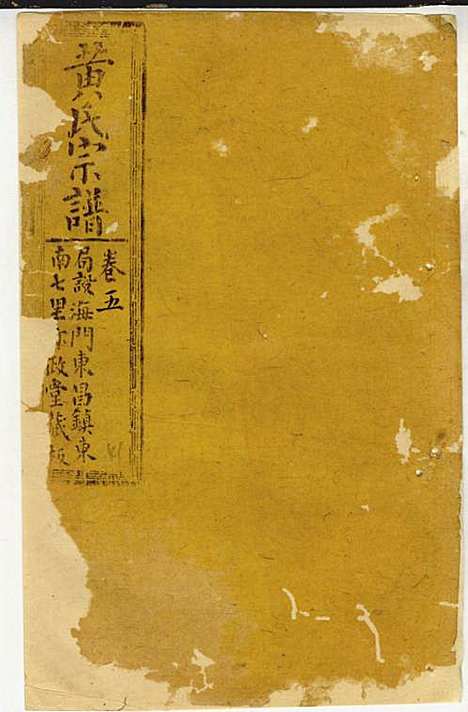 黃氏宗譜
卷五
局設海門東昌鎮東
南七里 政堂 板